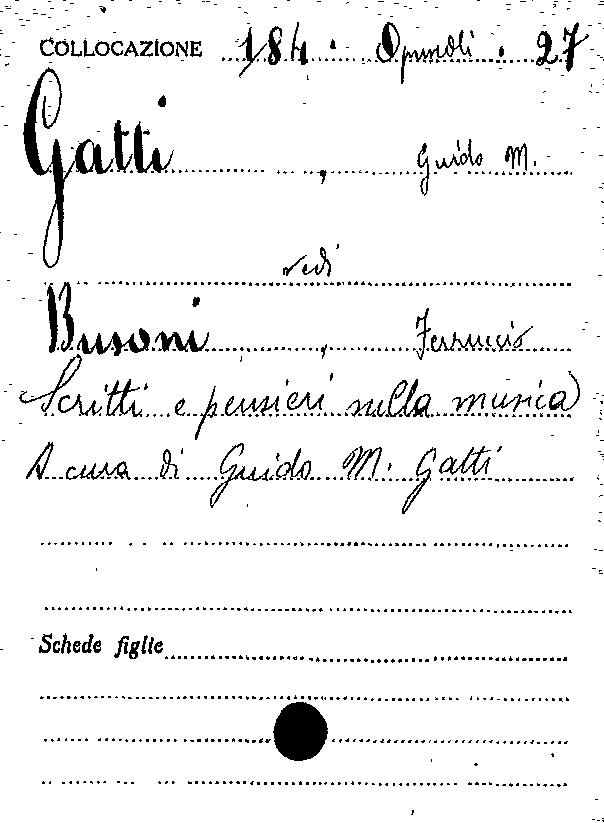 COLLOCAZIONE 184 . Opuscoli . 27
Gatti , Guido M.
vedi
Busoni , Ferruccio
Scritti e pensieri sulla musica
A cura di Guido M. Gatti
Schede figlie